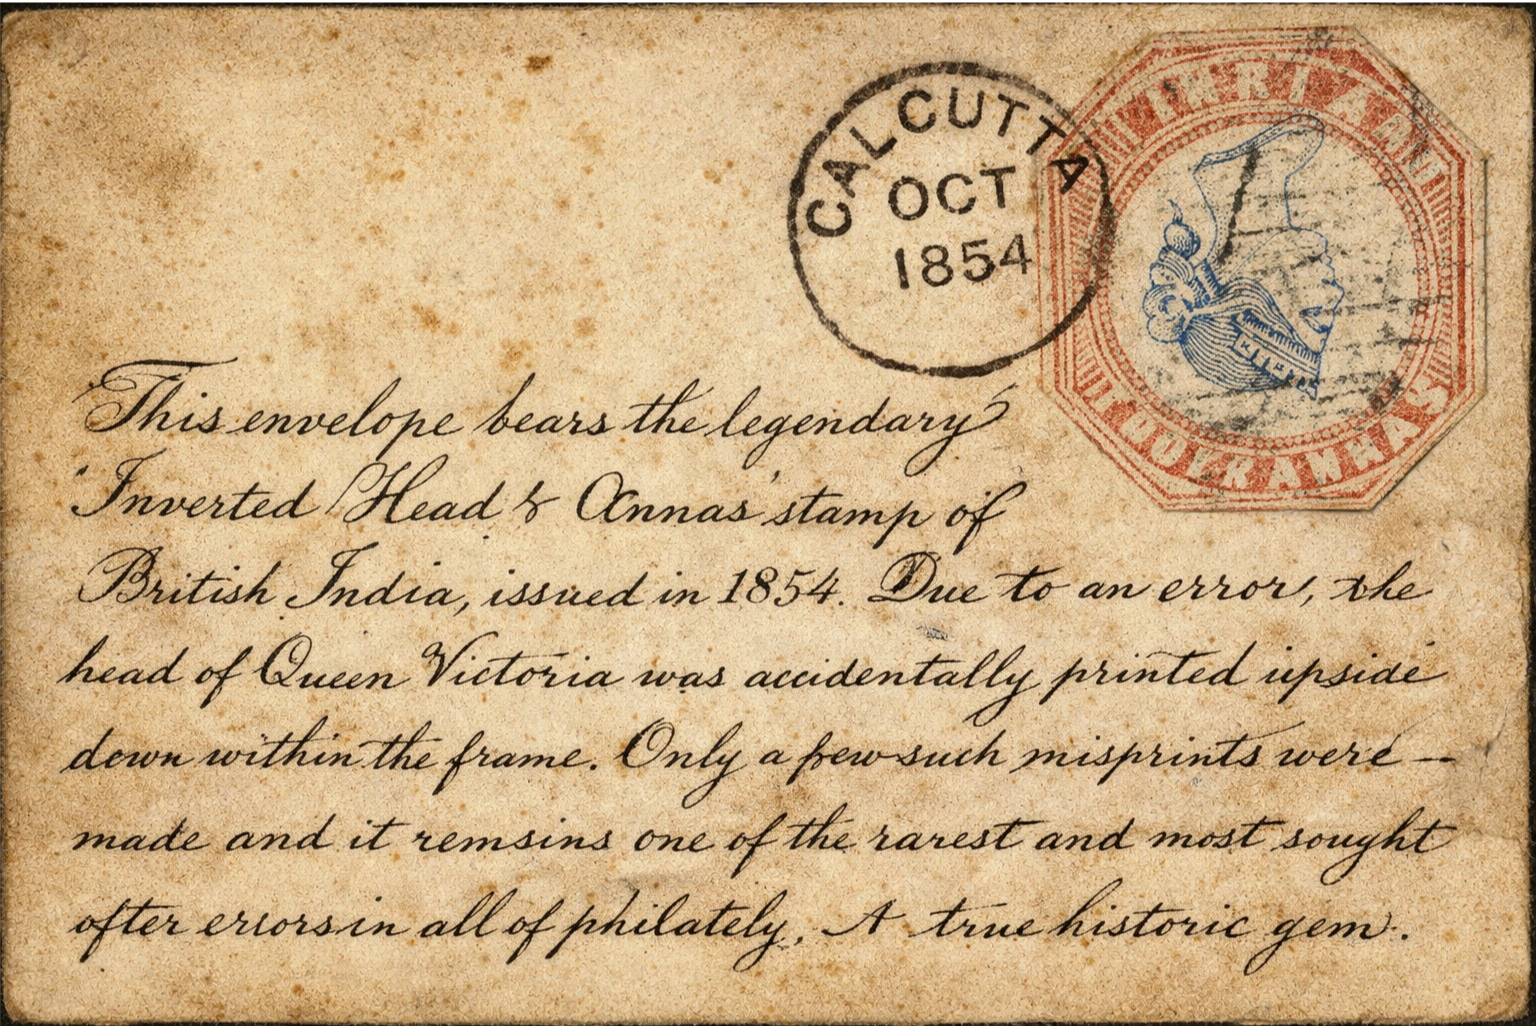 CALCUTTA
OCT
1854
This envelope bears the legendary
'Inverted Head & Annas' stamp of
British India, issued in 1854. Due to an error, the
head of Queen Victoria was accidentally printed upside
down within the frame. Only a few such misprints were —
made and it remsins one of the rarest and most sought
ofter errors in all of philately. A true historic gem.